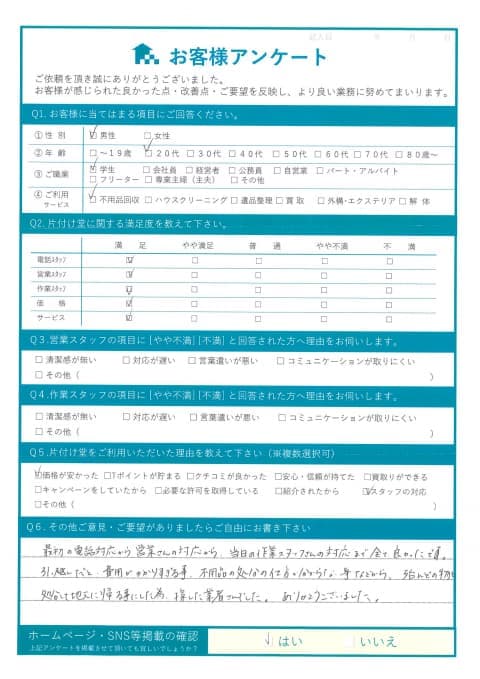 記入日 年 月 日
お客様アンケート
ご依頼を頂き誠にありがとうございました。
お客様が感じられた良かった点・改善点・ご要望を反映し、より良い業務に努めてまいります。
Q1. お客様に当てはまる項目にご回答ください。
① 性 別 ☑ 男性 □ 女性
② 年 齢 □ ~１９歳 ☑ ２０代 □ ３０代 □ ４０代 □ ５０代 □ ６０代 □ ７０代 □ ８０歳~
③ ご職業 ☑ 学生 □ 会社員 □ 経営者 □ 公務員 □ 自営業 □ パート・アルバイト
□ フリーター □ 専業主婦（主夫） □ その他
④ ご利用サービス ☑ 不用品回収 □ ハウスクリーニング □ 遺品整理 □ 買取 □ 外構・エクステリア □ 解体
Q2. 片付け堂に関する満足度を教えて下さい。
満 足 やや満足 普 通 やや不満 不 満
電話ｽﾀｯﾌ ☑ □ □ □ □
営業ｽﾀｯﾌ ☑ □ □ □ □
作業ｽﾀｯﾌ ☑ □ □ □ □
価 格 ☑ □ □ □ □
サービス ☑ □ □ □ □
Q3. 営業スタッフの項目に［やや不満］［不満］と回答された方へ理由をお伺いします。
□ 清潔感が無い □ 対応が遅い □ 言葉遣いが悪い □ コミュニケーションが取りにくい
□ その他（ ）
Q4. 作業スタッフの項目に［やや不満］［不満］と回答された方へ理由をお伺いします。
□ 清潔感が無い □ 対応が遅い □ 言葉遣いが悪い □ コミュニケーションが取りにくい
□ その他（ ）
Q5. 片付け堂をご利用いただいた理由を教えて下さい（※複数選択可）
☑ 価格が安かった □ Tポイントが貯まる □ クチコミが良かった □ 安心・信頼が持てた □ 買取りができる
□ キャンペーンをしていたから □ 必要な許可を取得している □ 紹介されたから ☑ スタッフの対応
□ その他（ ）
Q6. その他ご意見・ご要望がありましたらご自由にお書き下さい
最初の電話対応から営業さんの対応から、当日の作業スタッフさんの対応まで全て良かったです。
引っ越しだと費用がかかりすぎる事、不用品の処分の仕方が分からない事などから、ほとんどの物を
処分して地元に帰る事にした為、探した業者さんでした。ありがとうございました。
ホームページ・SNS等掲載の確認 ☑ はい □ いいえ
上記アンケートを掲載させて頂いても宜しいでしょうか？